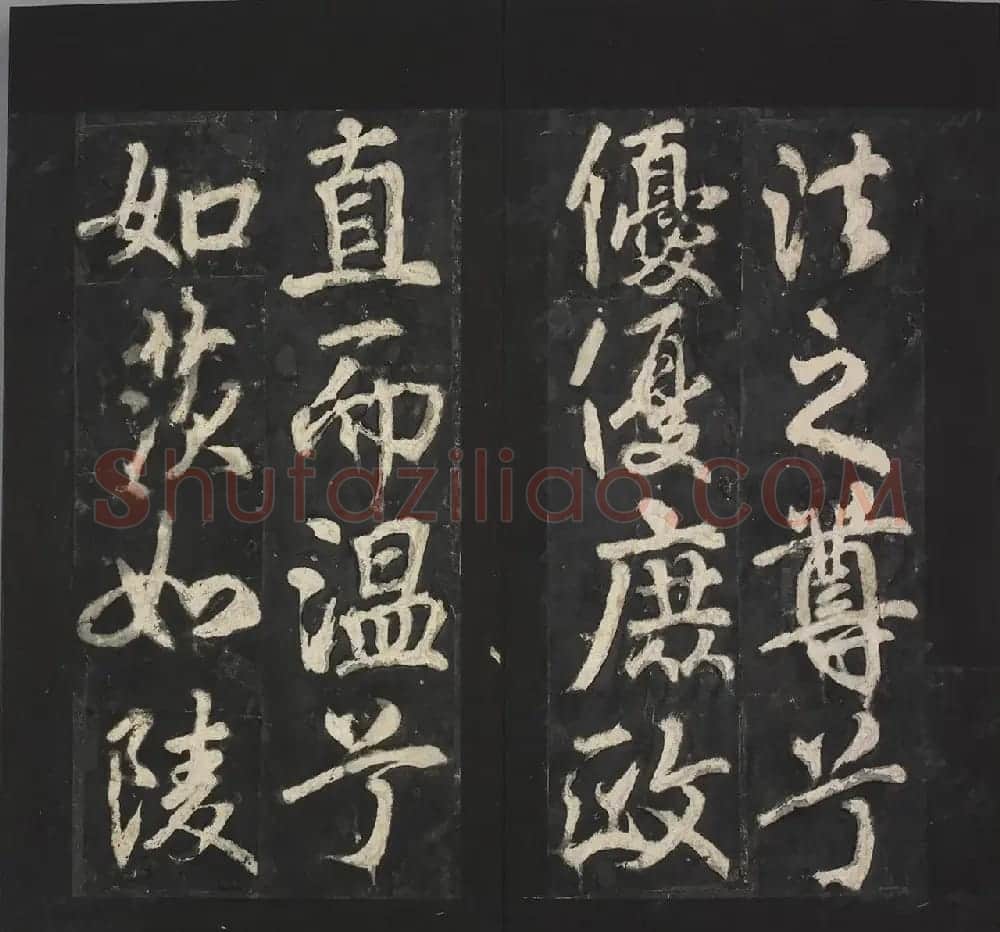 法之尊兮
優優庶政
直而温兮
如茨如陵
Shufaziliao.COM